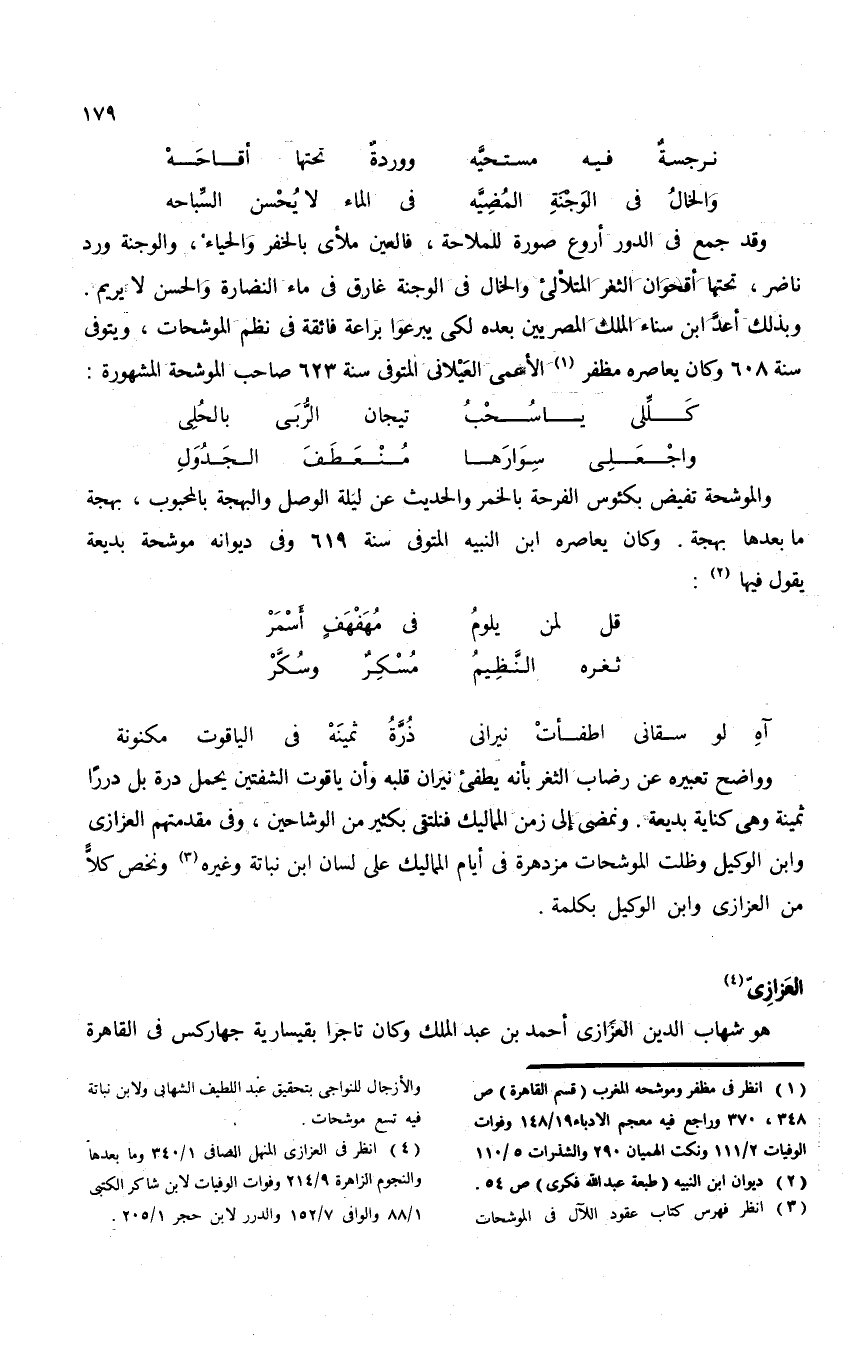 ١٧٩
نرجسةٌ فيه مستحيَّه ووردةٌ تحتها أقاحَهْ
وَالخالُ فى الوَجْنَةِ المُضِيَّه فى الماء لا يُحْسن السِّباحه
وقد جمع فى الدور أروع صورة للملاحة ، فالعين ملأى بالخفر وَالحياء ، والوجنة ورد
ناضر ، تحتها أقحوَان الثغر المتلألئ والخال فى الوجنة غارق فى ماء النضارة وَالحسن لا يريم .
وبذلك أعدَّ ابن سناء الملك المصريين بعده لكى يبرعوَا براعة فائقة فى نظم الموشحات ، ويتوفى
سنة ٦٠٨ وكان يعاصره مظفر (١) الأعمى العَيْلانى المتوفى سنة ٦٢٣ صاحب الموشحة المشهورة :
كَلِّلى ياسُحْبُ تيجان الرُّبَى بالحُلِى
واجْعَلِى سِوَارَها مُنْعَطَفَ الجَدْوَلِ
والموشحة تفيض بكئوس الفرحة بالخمر والحديث عن ليلة الوصل والبهجة بالمحبوب ، بهجة
ما بعدها بهجة . وكان يعاصره ابن النبيه المتوفى سنة ٦١٩ وفى ديوانه موشحة بديعة
يقول فيها (٢) :
قل لمن يلومُ فى مُهَفْهَفٍ أَسْمَرْ
ثغره النَّظِيمُ مُسْكِرٌ وسُكَّرْ
آهِ لو سقانى اطفأتْ نيرانى ذُرَّةُ ثمينَهْ فى الياقوت مكنونة
وواضح تعبيره عن رضاب الثغر بأنه يطفئ نيران قلبه وأن ياقوت الشفتين يحمل درة بل دررًا
ثمينة وهى كناية بديعة . ونمضى إلى زمن المماليك فنلتقى بكثير من الوشاحين ، وفى مقدمتهم العزازى
وابن الوكيل وظلت الموشحات مزدهرة فى أيام المماليك على لسان ابن نباتة وغيره (٣) ونخص كلاًّ
من العزازى وابن الوكيل بكلمة .
العَزازِىّ (٤)
هو شهاب الدين العزَّازى أحمد بن عبد الملك وكان تاجرا بقيسارية جهاركس فى القاهرة
(١) انظر فى مظفر وموشحه المغرب (قسم القاهرة) ص
٣٤٨ ، ٣٧٠ وراجع فيه معجم الادباء ١٤٨/١٩ وفوات
الوفيات ١١١/٢ ونكت الهميان ٢٩٠ والشذرات ١١٠/٥
(٢) ديوان ابن النبيه (طبعة عبدالله فكرى) ص ٥٤ .
(٣) انظر فهرس كتاب عقود اللآل فى الموشحات
والأزجال للنواجى بتحقيق عبد اللطيف الشهابى ولابن نباتة
فيه تسع موشحات .
(٤) انظر فى العزازى المنهل الصافى ٣٤٠/١ وما بعدها
والنجوم الزاهرة ٢١٤/٩ وفوات الوفيات لابن شاكر الكتبى
٨٨/١ والوافى ١٥٢/٧ والدرر لابن حجر ٢٠٥/١ .